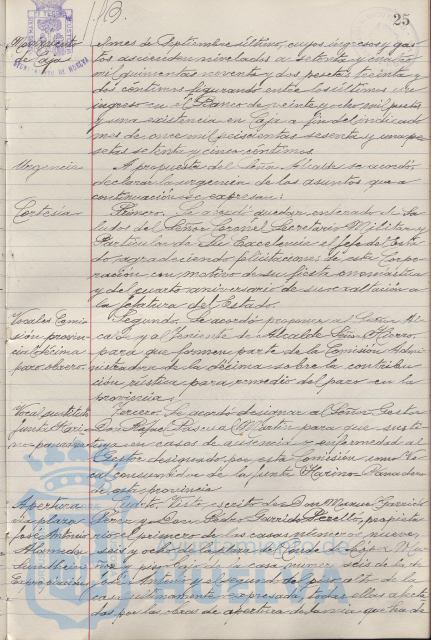 25
Movimiento de Caja
mes de Septiembre último, cuyos ingresos y gas-
tos ascienden nivelados a setenta y cuatro
mil quinientas noventa y dos pesetas treinta y
dos céntimos figurando entre los últimos un
ingreso en el Banco de veinte y ocho mil pesetas
y una existencia en Caja a fin del indicado
mes de once mil seiscientas sesenta y una pe-
setas setenta y cinco céntimos.
Urgencia
A propuesta del Señor Alcalde se acordó
declarar la urgencia de los asuntos que a
continuación se expresan:
Cortesía
Primero. Se acordó quedar enterado de Sa-
ludos del Señor Coronel Secretario Militar y
Particular de Su Excelencia el Jefe del Esta-
do agradeciendo felicitaciones de esta Corpo-
ración con motivo de su fiesta onomástica
y del cuarto aniversario de su exaltación a
la Jefatura del Estado.
Vocales Comi-
sión provin-
cial Décima
paro obrero.
Segundo. Se acordó proponer al Señor Al-
calde y al Teniente de Alcalde Señor
para que formen parte de la Comisión Admi-
nistradora de la décima sobre la contribu-
ción rústica para remedio del paro en la
provincia.
Vocal sustituto
Junta Hari-
no panadera
Tercero. Se acordó designar al Señor Gestor
Don Rafael Martín para que susti-
tuya en casos de ausencia y enfermedad al
Gestor designado por esta Comisión como Vo-
cal consumidor de la Junta Harino Panadera
de esta provincia
Apertura
vía plaza
José Antonio
Alameda
Cuarto. Visto escrito de Don Manuel Garrido
Pérez y Don Pedro Garrido Perelló, propieta-
rio el primero de las casas números nueve,
seis y ocho de la
y piso bajo de la casa número seis de la de
José Antonio y el segundo del piso alto de la
casa últimamente expresada, todas ellas afecta-
das por las obras de apertura de la vía que ha de